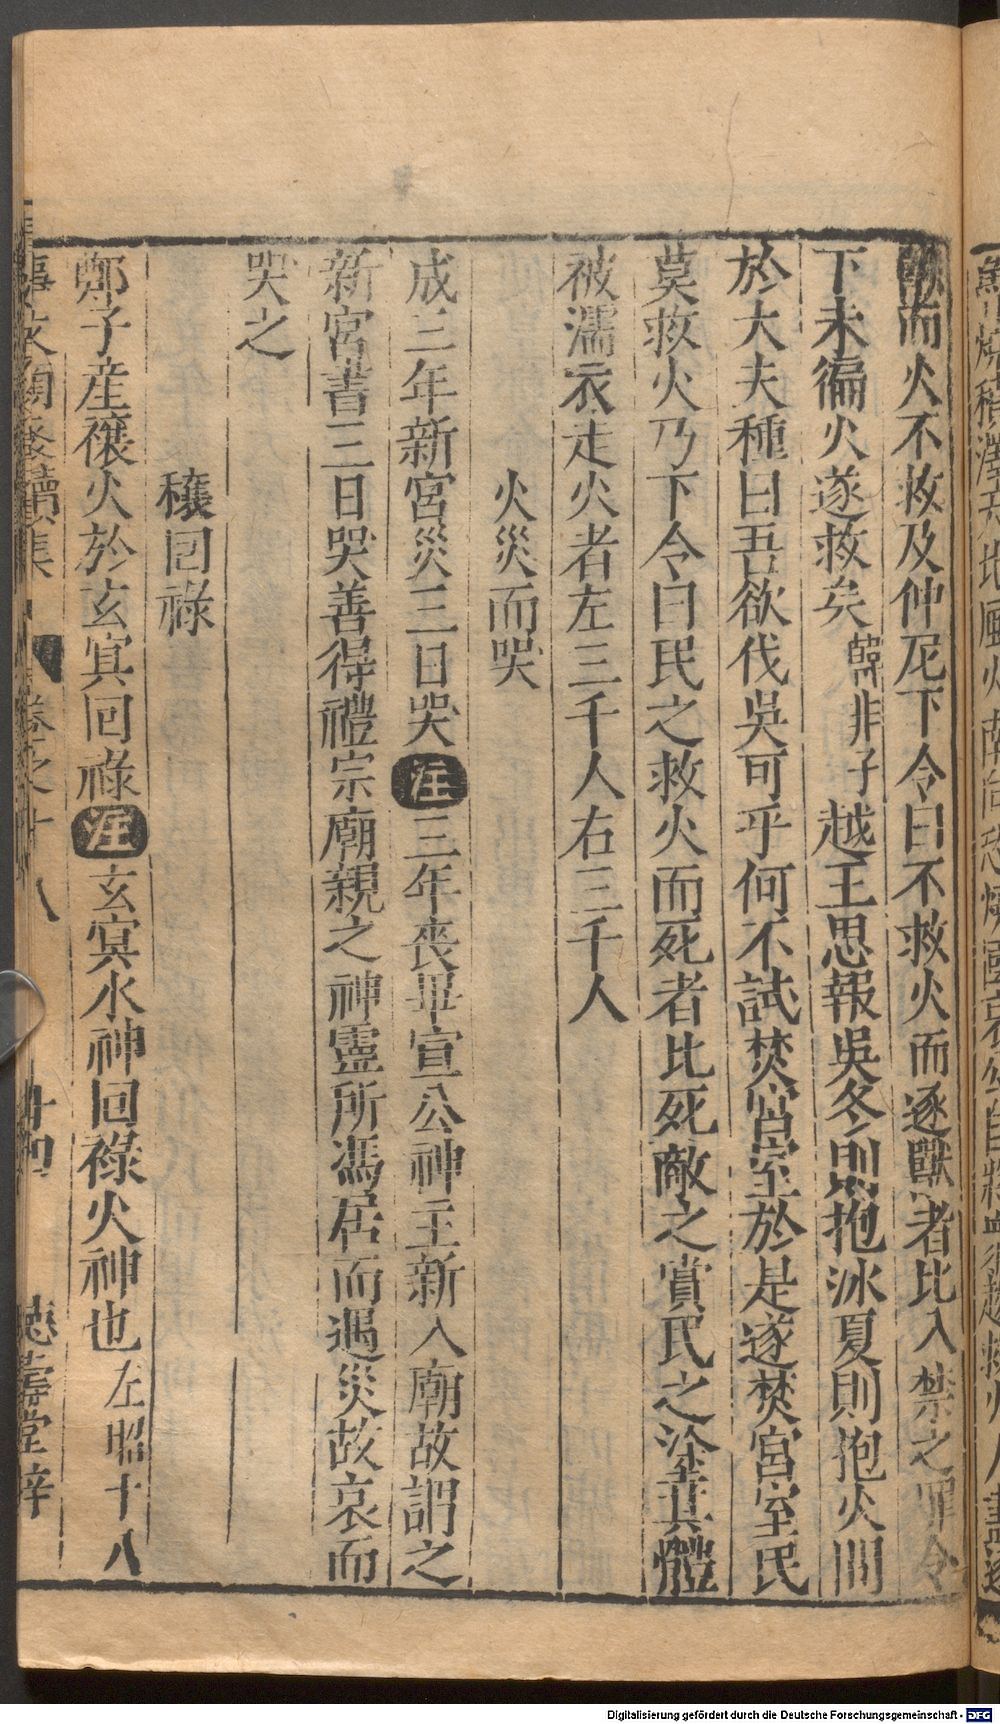 獸而火不救及仲尼下令曰不救火而逐獸者比入禁之罪令
下未徧火遂救矣韓非子越王思報吳冬則抱冰夏則抱火問
於大夫種曰吾欲伐吳可乎何不試焚宮室於是遂焚宮室民
莫救火乃下令曰民之救火而死者比死敵之賞民之塗其體
被濡衣走火者左三千人右三千人
火災而哭
成三年新宮災三日哭注三年喪畢宣公神主新入廟故謂之
新宮書三日哭善得禮宗廟親之神靈所馮居而遇災故哀而
哭之
穰回祿
鄭子產禳火於玄冥回祿注玄冥水神回祿火神也左昭十八
事文類聚續集 卷之十八 十四 德壽堂梓
Digitalisierung gefördert durch die Deutsche Forschungsgemeinschaft - DFG